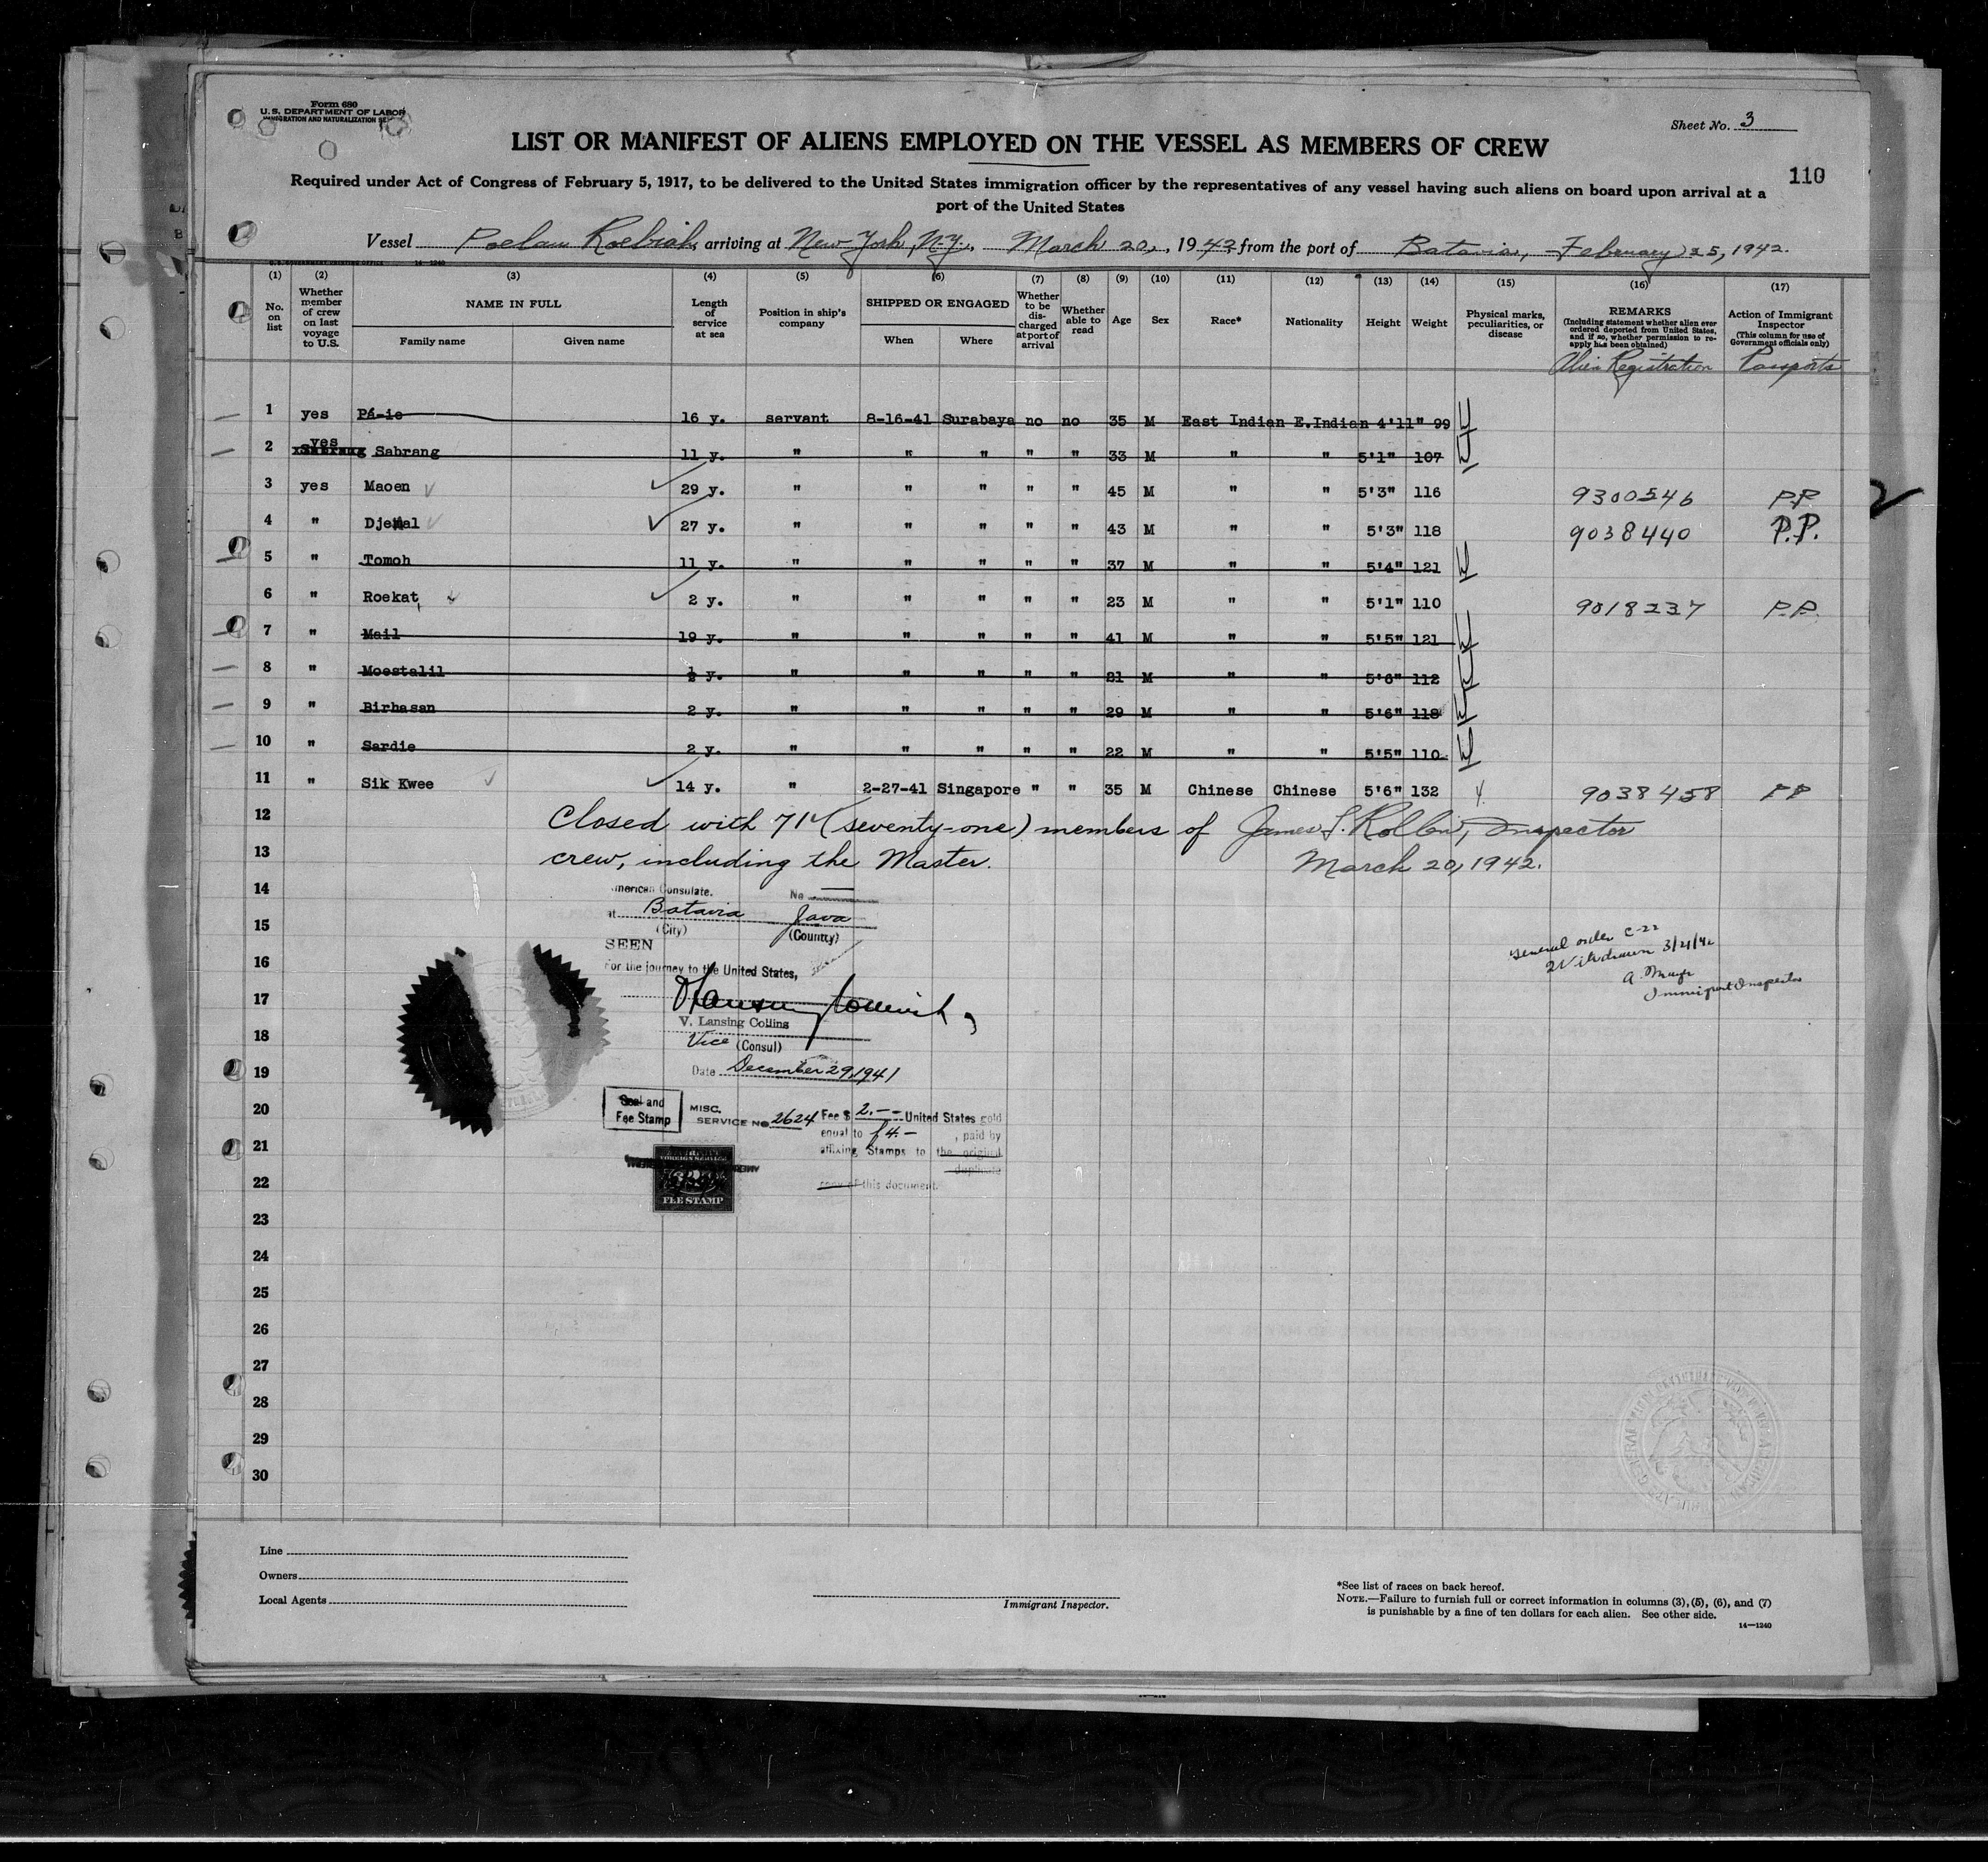 Form 680
U. S. DEPARTMENT OF LABOR
IMMIGRATION AND NATURALIZATION SE
Sheet No. 3
LIST OR MANIFEST OF ALIENS EMPLOYED ON THE VESSEL AS MEMBERS OF CREW
110
Required under Act of Congress of February 5, 1917, to be delivered to the United States immigration officer by the representatives of any vessel having such aliens on board upon arrival at a
port of the United States
Vessel Poelau Roebiah, arriving at New York, N.Y., March 20, 1942 from the port of Batavia, February 25, 1942.
(1) (2) (3) (4) (5) (6) (7) (8) (9) (10) (11) (12) (13) (14) (15) (16) (17)
No. on list
Whether member of crew on last voyage to U.S.
NAME IN FULL
Family name Given name
Length of service at sea
Position in ship's company
SHIPPED OR ENGAGED
When Where
Whether to be discharged at port of arrival
Whether able to read
Age
Sex
Race*
Nationality
Height
Weight
Physical marks, peculiarities, or disease
REMARKS
(Including statement whether alien ever ordered deported from United States, and if so, whether permission to re-apply has been obtained)
Action of Immigrant Inspector
(This column for use of Government officials only)
Alien Registration Passports
1 yes Pá-ie 16 y. servant 8-16-41 Surabaya no no 35 M East Indian E.Indian 4'11" 99
2 yes Sabrang 11 y. " " " " " 33 M " " 5'1" 107
3 yes Maoen 29 y. " " " " " 45 M " " 5'3" 116 9300546 P.P.
4 " Djemal 27 y. " " " " " 43 M " " 5'3" 118 9038440 P.P.
5 " Tomoh 11 y. " " " " " 37 M " " 5'4" 121
6 " Roekat 2 y. " " " " " 23 M " " 5'1" 110 9018237 P.P.
7 " Mail 19 y. " " " " " 41 M " " 5'5" 121
8 " Moestalil ½ y. " " " " " 21 M " " 5'6" 112
9 " Birhasan 2 y. " " " " " 29 M " " 5'6" 118
10 " Sardie 2 y. " " " " " 22 M " " 5'5" 110
11 " Sik Kwee 14 y. " 2-27-41 Singapore " " 35 M Chinese Chinese 5'6" 132 9038458 PP
12 Closed with 71 (seventy-one) members of James S. Rollin, Inspector
13 crew, including the Master. March 20, 1942.
14
American Consulate. No
at Batavia Java
15
(City) (Country)
SEEN
16
For the journey to the United States,
General order C-22
Withdrawn 3/21/42
Immigrant Inspector
17
V. Lansing Collins
18
Vice (Consul)
19
Date December 29, 1941
20
Seal and
Fee Stamp
MISC.
SERVICE No 2624
Fee $ 2.-- United States gold
equal to f 4.- , paid by
affixing Stamps to the original
duplicate
copy of this document.
21
22
FEE STAMP
23
24
25
26
27
28
29
30
Line
Owners
Local Agents
Immigrant Inspector.
*See list of races on back hereof.
NOTE.—Failure to furnish full or correct information in columns (3), (5), (6), and (7)
is punishable by a fine of ten dollars for each alien. See other side.
14—1240